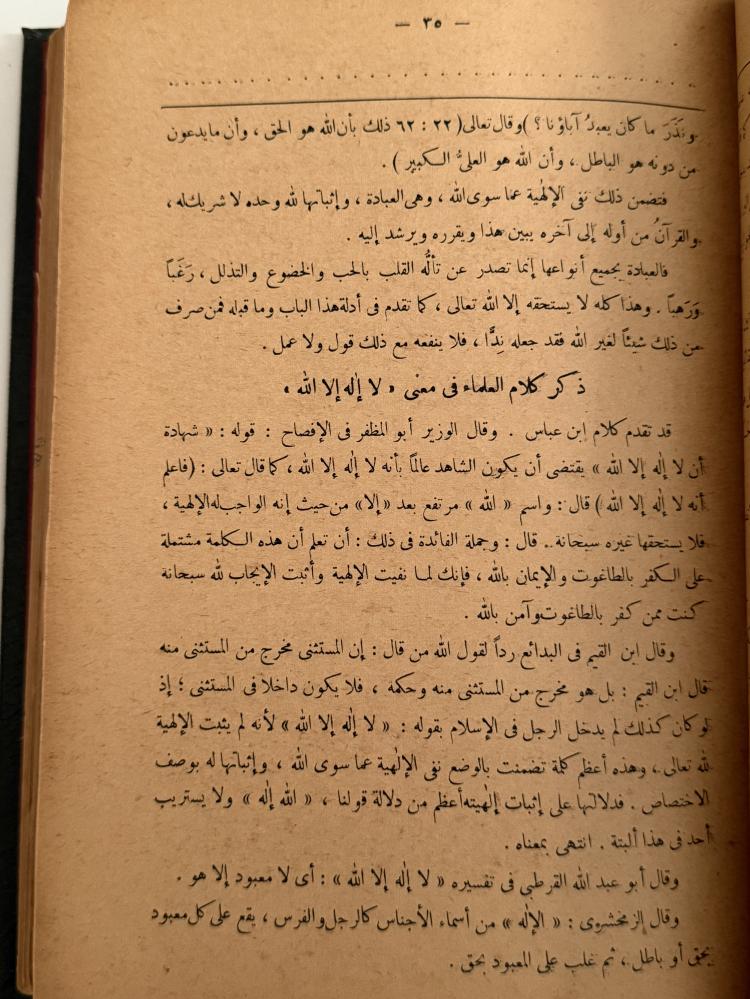 — ٣٥ —
ونَذَرَ ما كان يعبدُ آباؤنا ؟ ) وقال تعالى ( ٢٢ : ٦٢ ذلك بأن الله هو الحق ، وأن ما يدعون
من دونه هو الباطل ، وأن الله هو العلىُّ الكبير ) .
فتضمن ذلك نفى الإلهية عما سوى الله ، وهى العبادة ، وإثباتها لله وحده لا شريك له ،
والقرآنُ من أوله إلى آخره يبين هذا ويقرره ويرشد إليه .
فالعبادة بجميع أنواعها إنما تصدر عن تألُّه القلب بالحب والخضوع والتذلل ، رَغَباً
وَرَهباً . وهذا كله لا يستحقه إلا الله تعالى ، كما تقدم فى أدلة هذا الباب وما قبله فمن صرف
من ذلك شيئاً لغير الله فقد جعله نِدًّا ، فلا ينفعه مع ذلك قول ولا عمل .
ذكر كلام العلماء فى معنى « لا إله إلا الله »
قد تقدم كلام ابن عباس . وقال الوزير أبو المظفر فى الإفصاح : قوله : « شهادة
أن لا إله إلا الله » يقتضى أن يكون الشاهد عالماً بأنه لا إله إلا الله ، كما قال تعالى : ( فاعلم
أنه لا إله إلا الله ) قال : واسم « الله » مرتفع بعد « إلا » من حيث إنه الواجب له الإلهية ،
فلا يستحقها غيره سبحانه . قال : وجملة الفائدة فى ذلك : أن تعلم أن هذه الكلمة مشتملة
على الكفر بالطاغوت والإيمان بالله ، فإنك لما نفيت الإلهية وأثبت الإيجاب لله سبحانه
كنت ممن كفر بالطاغوت وآمن بالله .
وقال ابن القيم فى البدائع رداً لقول الله من قال : إن المستثنى مخرج من المستثنى منه
قال ابن القيم : بل هو مخرج من المستثنى منه وحكمه ، فلا يكون داخلا فى المستثنى ؛ إذ
لو كان كذلك لم يدخل الرجل فى الإسلام بقوله : « لا إله إلا الله » لأنه لم يثبت الإلهية
لله تعالى ، وهذه أعظم كلمة تضمنت بالوضع نفى الإلهية عما سوى الله ، وإثباتها له بوصف
الاختصاص . فدلالتها على إثبات إلهيته أعظم من دلالة قولنا ، « الله إله » ولا يستريب
أحد فى هذا ألبتة . انتهى بمعناه .
وقال أبو عبد الله القرطبى فى تفسيره « لا إله إلا الله » : أى لا معبود إلا هو .
وقال الزمخشروى : « الإله » من أسماء الأجناس كالرجل والفرس ، يقع على كل معبود
بحق أو باطل ، ثم غلب على المعبود بحق .